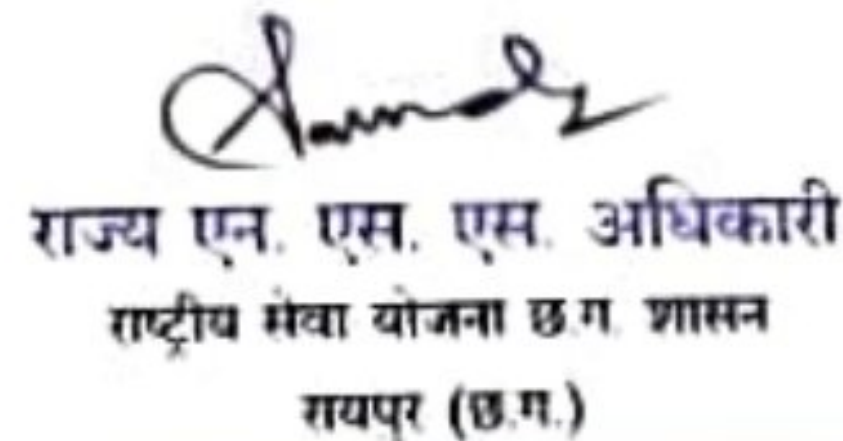 राज्य एन. एस. एस. अधिकारी
राष्ट्रीय सेवा योजना छ.ग. शासन
रायपुर (छ.ग.)